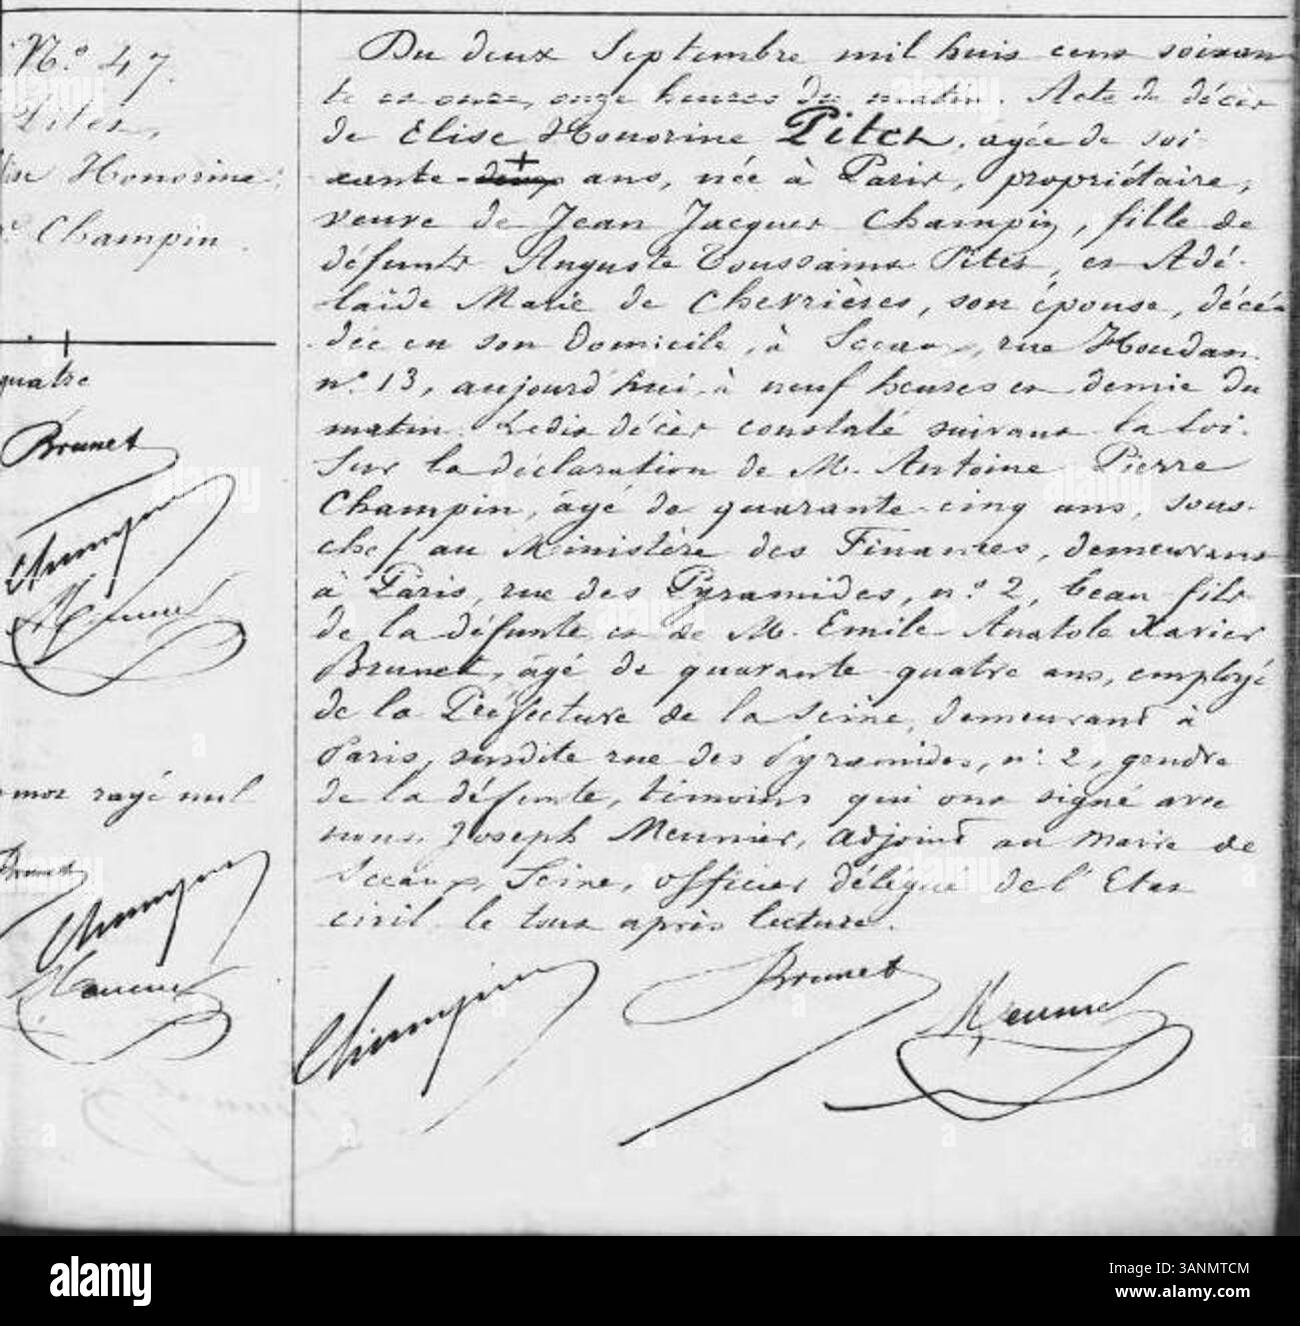 N.o 47.
Pites,
Honorine
Ve Champin
quatre
Brunet
Champin
Meunier
mot rayé nul
Brunet
Champin
Meunier
Du deux Septembre mil huit cent soixan
te et onze, onze heures du matin. Acte de décès
de Elise Honorine Pitch, agée de soi-
xante-deux ans, née à Paris, propriétaire,
veuve de Jean Jacques Champin, fille de
défunts Auguste Toussaint Pites, et Adé-
laïde Marie de Chevrières, son épouse, décé-
dée en son domicile, à Sceaux, rue Houdan
n.o 13, aujourd'hui à neuf heures et demie du
matin. Ledit décès constaté suivant la loi.
Sur la déclaration de M. Antoine Pierre
Champin, âgé de quarante-cinq ans, sous-
chef au Ministère des Finances, demeurant
à Paris, rue des Pyramides, n.o 2, beau fils
de la défunte et de M. Emile Anatole Xavier
Brunet, âgé de quarante quatre ans, employé
de la Préfecture de la Seine, demeurant à
Paris, susdite rue des Pyramides, n.o 2, gendre
de la défunte, témoins qui ont signé avec
nous, Joseph Meunier, adjoint au Maire de
Sceaux, Seine, officier délégué de l'Etat
civil. le tout après lecture.
Champin Brunet Meunier
alamy
3ANMTCM
www.alamy.com